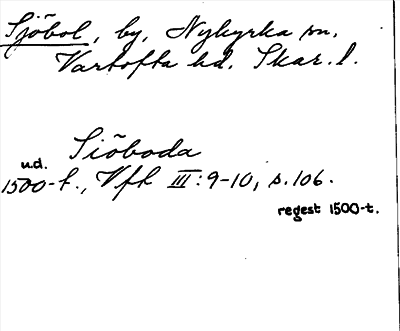 Sjöbol, by, Nykyrka sn.
Vartofta hd. Skar. l.
Siöboda
u.d.
1500-t., Vfh III: 9-10, s. 106.
regest 1500-t.